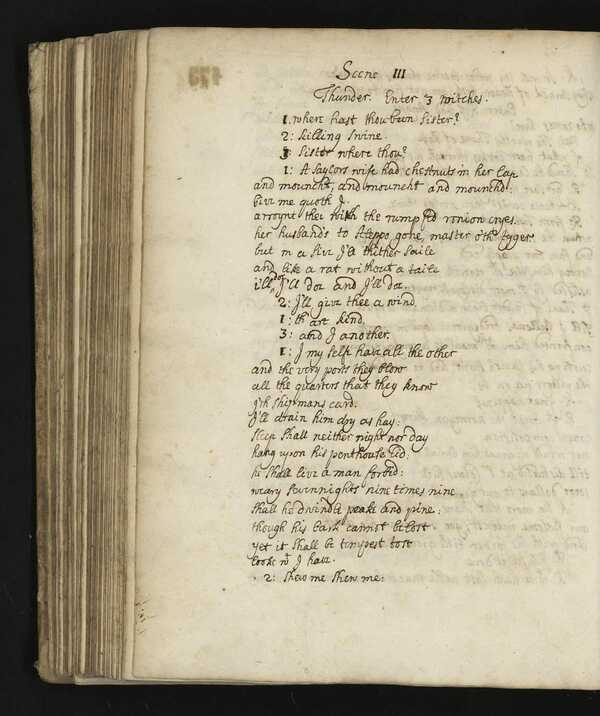 Scene III
Thunder. Enter 3 witches.
1. where hast thou been sister?
2: killing swine.
3: Sister where thou?
1: A saylors wife had chestnuts in her lap
and mouncht, and mouncht and mouncht:
give me quoth I.
aroynt thee witch the rump fed ronion cryes.
her husband's to Aleppo gone, master o'th tyger
but in a sive I'll thither saile
and like a rat without a taile
i'll doe I'll doe and I'll doe.
2: I'll give thee a wind.
1: th'art kind.
3: and I another.
1: I my self have all the other
and the very ports they blow
all the quarters that they know
i'th shipmans card.
I'll drain him dry as hay:
sleep shall neither night nor day
hang upon his penthouse lid:
he shall live a man forbid:
weary sevinnights nine times nine
shall he dwindle peake and pine:
though his bark cannot be lost
yet it shall be tempest tost
looke wt I have.
2: shew me shew me: